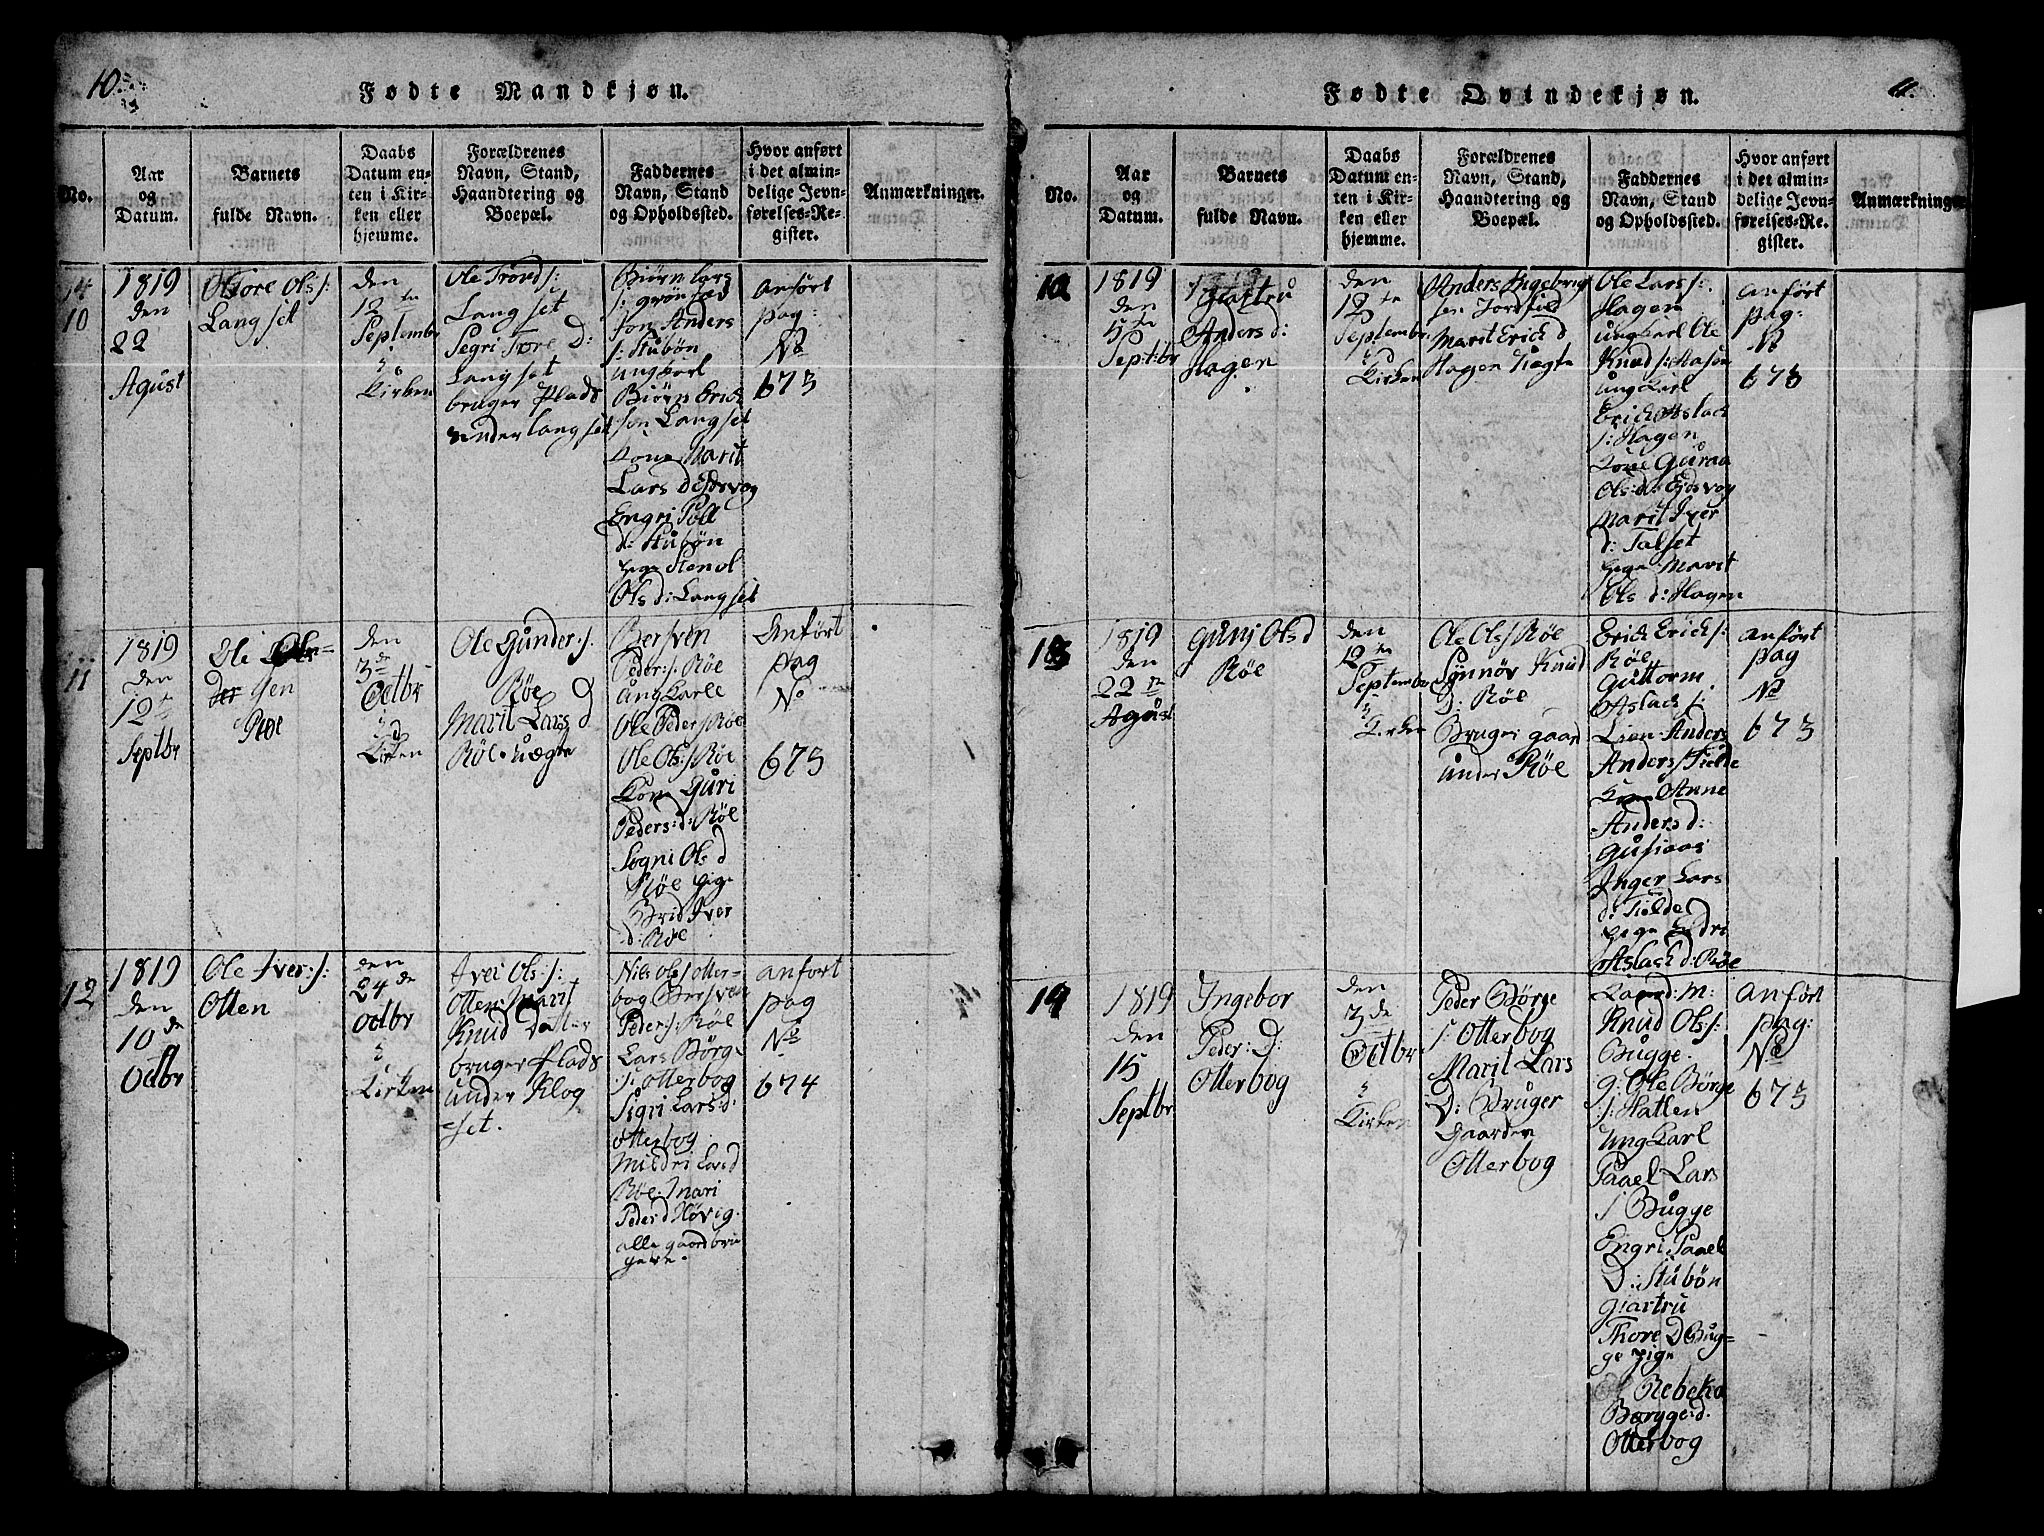 10.
Fødte Mandkjøn.
No.
Aar
og
Datum.
Barnets
fulde Navn.
Daabs
Datum en-
ten i Kir-
ken eller
hjemme.
Forældrenes
Navn, Stand,
Haandtering og
Boepæl.
Faddernes
Navn, Stand
og Opholdssted.
Hvor anført
i det almin-
delige Jevn-
førelses-Re-
gister.
Anmærkninger.
10
1819
den
22
Agust
Tore Ols/:
Langset
den
12 te
Septembr
i
Kirken
Ole Trond/:
Langset
Segri Tore D:
Langset
bruger Plads
under langset
Biørn Lars
Jon Anders
/: Stubøn
ungkarl
Biørn Erick
søn Langset
kone Marit
Lars D Edsvog
Engri Poll
d: Stubøn
pige Stenol
Ols d: Langset
anført
pag:
No
673
11
1819
den
12 te
Septbr
Ole
Gen
Røe
den
3 de
Octbr
i
Kirken
Ole Gunder:/.
Røe
Marit Lars D
Røe uægte
Bersven
Peder:/: Røe
Ung Karle
Ole Peder/ Røe
Ole Ols:/ Røe
Kone Guri
Peders:d: Røe
Sogni Ols d
Røe pige
Brid Iver
d: Røe
Anført
pag
No
673
12
1819
den
10 de
Octbr
Ole Iver:/:
Otten
den
24 de
octbr
i
Kirken
Ivei Ols:/:
Otten Marit
Knud Datter
bruger Plads
under Klog
set.
Nils Ols/ otter-
bog Bersven
Peder:/: Røe
Lars Børge
/: otterbog
Sigri Lars:d:
otterbog
Mildri Lars d
Røe: Mari
Peder d Høvig.
alle gaardbru
gere.
anfort
pag
No
674
11.
Fødte Qvindekjøn.
No.
Aar
og
Datum.
Barnets
fulde Navn.
Daabs
Datum en-
ten i Kir-
ken eller
hjemme.
Forældrenes
Navn, Stand,
Haandtering og
Boepæl.
Faddernes
Navn, Stand
og Opholdssted.
Hvor anført
i det almin-
delige Jevn-
førelses-Re-
gister.
Anmærkninger
12
1819
den
5 te
Sept:br
Giartru
Anders d:
Hagen
den
12 te
Septembr
i
Kirken
Anders Ingebrig
sen
Marit Erick d
Hagen Uægte
Ole Lars/:
Hagen
ungkarl Ole
Knud/:
ungkarl
Erick Aslach
/: Hagen
Kone Guraa
Ols:d: Eidsvog
Marit Iver
d: Talset
pige Marit
Ols d: Hagen
anført
pag:
N
673
13
1819
den
22 de
Agust
Guni Ols d
Røe
den
12 te
Septembr
i
Kirken
Ole Ols/ Røe
Synnøv Knud
D: Røe
Bruger gaard
under Røe
Erick Erick/:
Røe
Guttorm
Aslach/:
Lien Anders
Anders/ Fielde
Kone Anne
Anders d:
Gusiaas
Inger Lars
d: Fielde
pige Endri
Aslach d: Røe
anført
pag
No
673
14
1819
den
15
Septbr
Ingebor
Peder: D:
Otterbog
den
3 de
Octbr
i
Kirken
Peder Børge
/: Otterbog
Marit Lars
D: Bruger
Gaarden
Otterbog
Laand: M:
Knud Ols/:
Bugge.
g: Ole Børge
/: Hatlen
Ungkarl
Paael Lars
/ Bugge
Engri Paael
D: Stubøn
Giartru
Thore D Bug-
ge pige
Rebeka
Børyge:d.
Otterbog
Anført
pag:
No
673